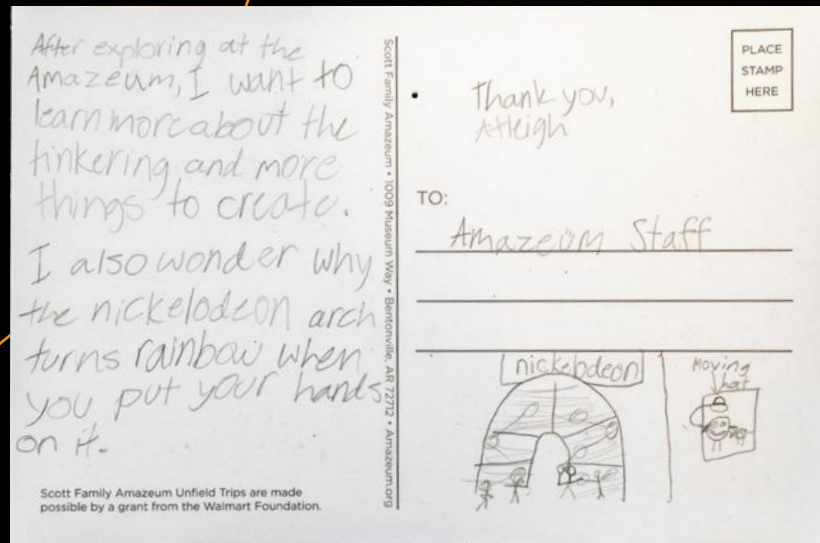 After exploring at the
Amazeum, I want to
learn more about the
tinkering and more
things to create.
I also wonder why
the nickelodeon arch
turns rainbow when
you put your hands
on it.
Scott Family Amazeum Unfield Trips are made
possible by a grant from the Walmart Foundation.
Scott Family Amazeum • 1009 Museum Way • Bentonville, AR 72712 • Amazeum.org
PLACE
STAMP
HERE
Thank you,
TO:
Amazeum Staff
nickelodeon
Moving
hat